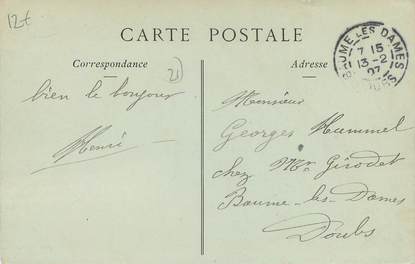 12t
CARTE POSTALE
Correspondance
Adresse
21
BAUME LES DAMES
7 15
13-2
07
DOUBS
bien le bonjour
Henri
Monsieur
Georges Hummel
chez Mr Girodet
Baume-les-Dames
Doubs